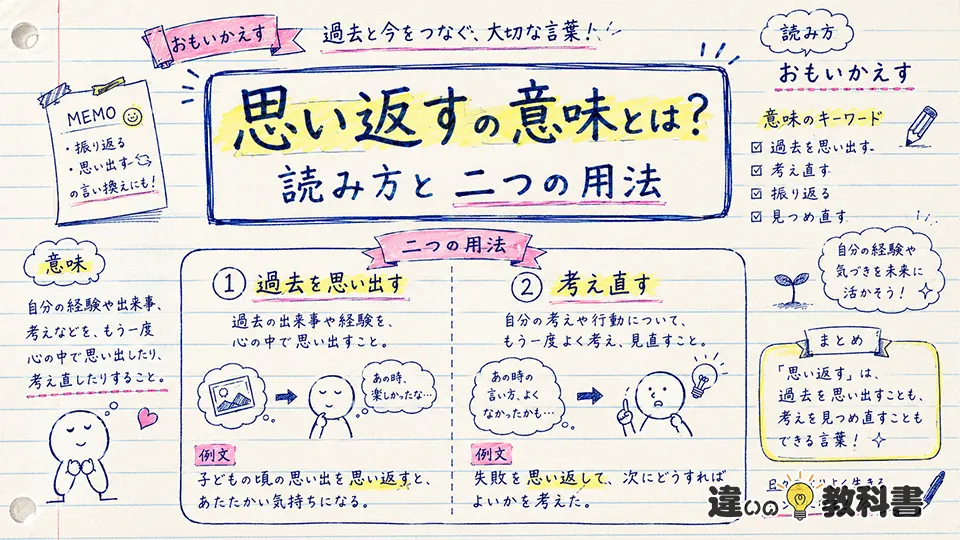 おもいかえす
過去と今をつなぐ、大切な言葉！
思い返すの意味とは？
読み方と 二つの用法
読み方
おもいかえす
MEMO
・振り返る
・思い出す
の言い換えにも！
意味のキーワード
過去を思い出す
考え直す
振り返る
見つめ直す
意味
自分の経験や出来事、
考えなどを、もう一度
心の中で思い出したり、
考え直したりすること。
二つの用法
① 過去を思い出す
過去の出来事や経験を、
心の中で思い出すこと。
あの時、
楽しかったな…
例文
子どもの頃の思い出を思い返すと、
あたたかい気持ちになる。
② 考え直す
自分の考えや行動について、
もう一度よく考え、見直すこと。
あの時の
言い方、よく
なかったかも…
例文
失敗を思い返して、次にどうすれば
よいかを考えた。
自分の経験や
気づきを未来に
活かそう！
まとめ
「思い返す」は、
過去を思い出すことも、
考えを見つめ直すことも
できる言葉！
違いの教科書